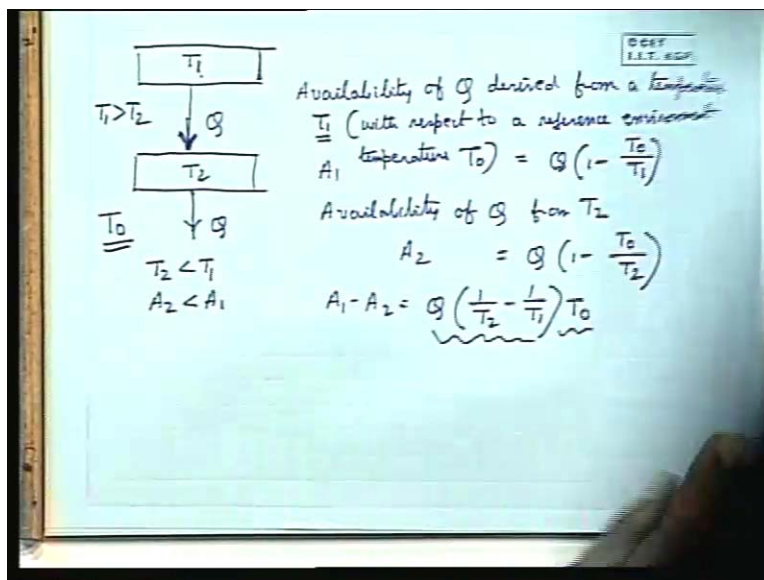 © CET
I.I.T. KGP
T₁
T₁>T₂
Q
T₂
T₀
Q
T₂ < T₁
A₂ < A₁
Availability of Q derived from a temperature
T₁ (with respect to a reference environment
A₁ temperature T₀) = Q(1 - T₀/T₁)
Availability of Q from T₂
A₂ = Q(1 - T₀/T₂)
A₁ - A₂ = Q(1/T₂ - 1/T₁)T₀